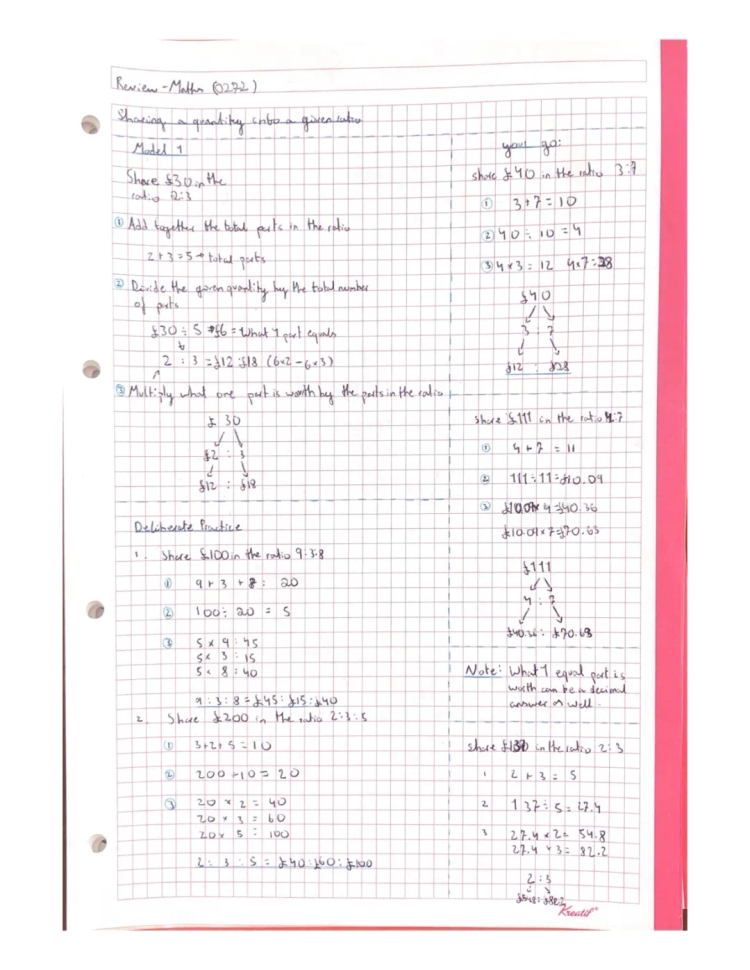 Review - Maths (0272)
Sharing a quantity into a given ratio
Model 1
Share £30 in the
ratio 2:3
① Add together the total parts in the ratio
2 + 3 = 5 → total parts
② Divide the given quantity by the total number
of parts
£30 ÷ 5 = £6 = What 1 part equals
2 : 3 = £12 : £18 (6×2 - 6×3)
③ Multiply what one part is worth by the parts in the ratio
£30
£2 : 3
£12 : £18
Deliberate Practice
1. Share £100 in the ratio 9:3:8
① 9 + 3 + 8 = 20
② 100 ÷ 20 = 5
③ 5 × 9 = 45
5 × 3 = 15
5 × 8 = 40
9 : 3 : 8 = £45 : £15 : £40
2. Share £200 in the ratio 2:3:5
① 3+2+5 = 10
② 200 ÷ 10 = 20
③ 20 × 2 = 40
20 × 3 = 60
20 × 5 = 100
2 : 3 : 5 = £40 : £60 : £100
your go:
share £40 in the ratio 3:7
① 3+7 = 10
② 40 ÷ 10 = 4
③ 4×3 = 12 4×7 = 28
£40
3 : 7
£12 : £28
share £111 in the ratio 4:7
① 4 + 7 = 11
② 111 ÷ 11 = £10.09
③ £10.09 × 4 = £40.36
£10.09 × 7 = £70.63
£111
4 : 7
£40.36 : £70.63
Note: What 1 equal part is
worth can be a decimal
answer as well.
share £137 in the ratio 2:3
1 2 + 3 = 5
2 137 ÷ 5 = 27.4
3 27.4 × 2 = 54.8
27.4 × 3 = 82.2
2 : 3
£54.8 : £82.2
Kreatif